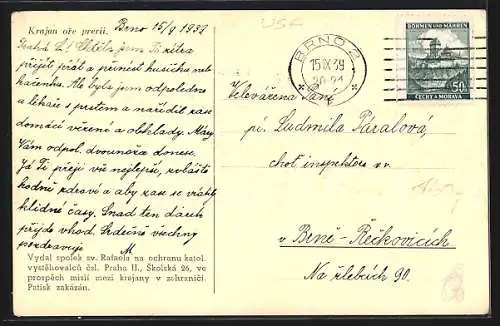 Krajan oře prerii. Brno 15/9 1939
USA
Drahá L.! Chtěla jsem Ti včera
přijít přát a přinést husičku neb
kačenku. Ale byla jsem odpoledne
u lékaře s prstem a nařídil zase
domácí vězení a obklady. Máry
Vám odpol. dvounožce donese.
Já Ti přeji vše nejlepší, zvláště
hodně zdraví a aby zase se vrátily
klidné časy. Snad ten dárek
přijde vhod. Srdečně všechny
pozdravuje M
Vydal spolek sv. Rafaela na ochranu katol.
vystěhovalců čsl. Praha II., Školská 26, ve
prospěch misií mezi krajany v zahraničí.
Patisk zakázán.
BRNO 2
15.IX.39
20-21
BÖHMEN UND MÄHREN
50h
ČECHY A MORAVA
Velevážená Paní
pí. Ludmila Páralová,
choť inspektora v.v.
v Brně-Řečkovicích
Na žlebích 90.